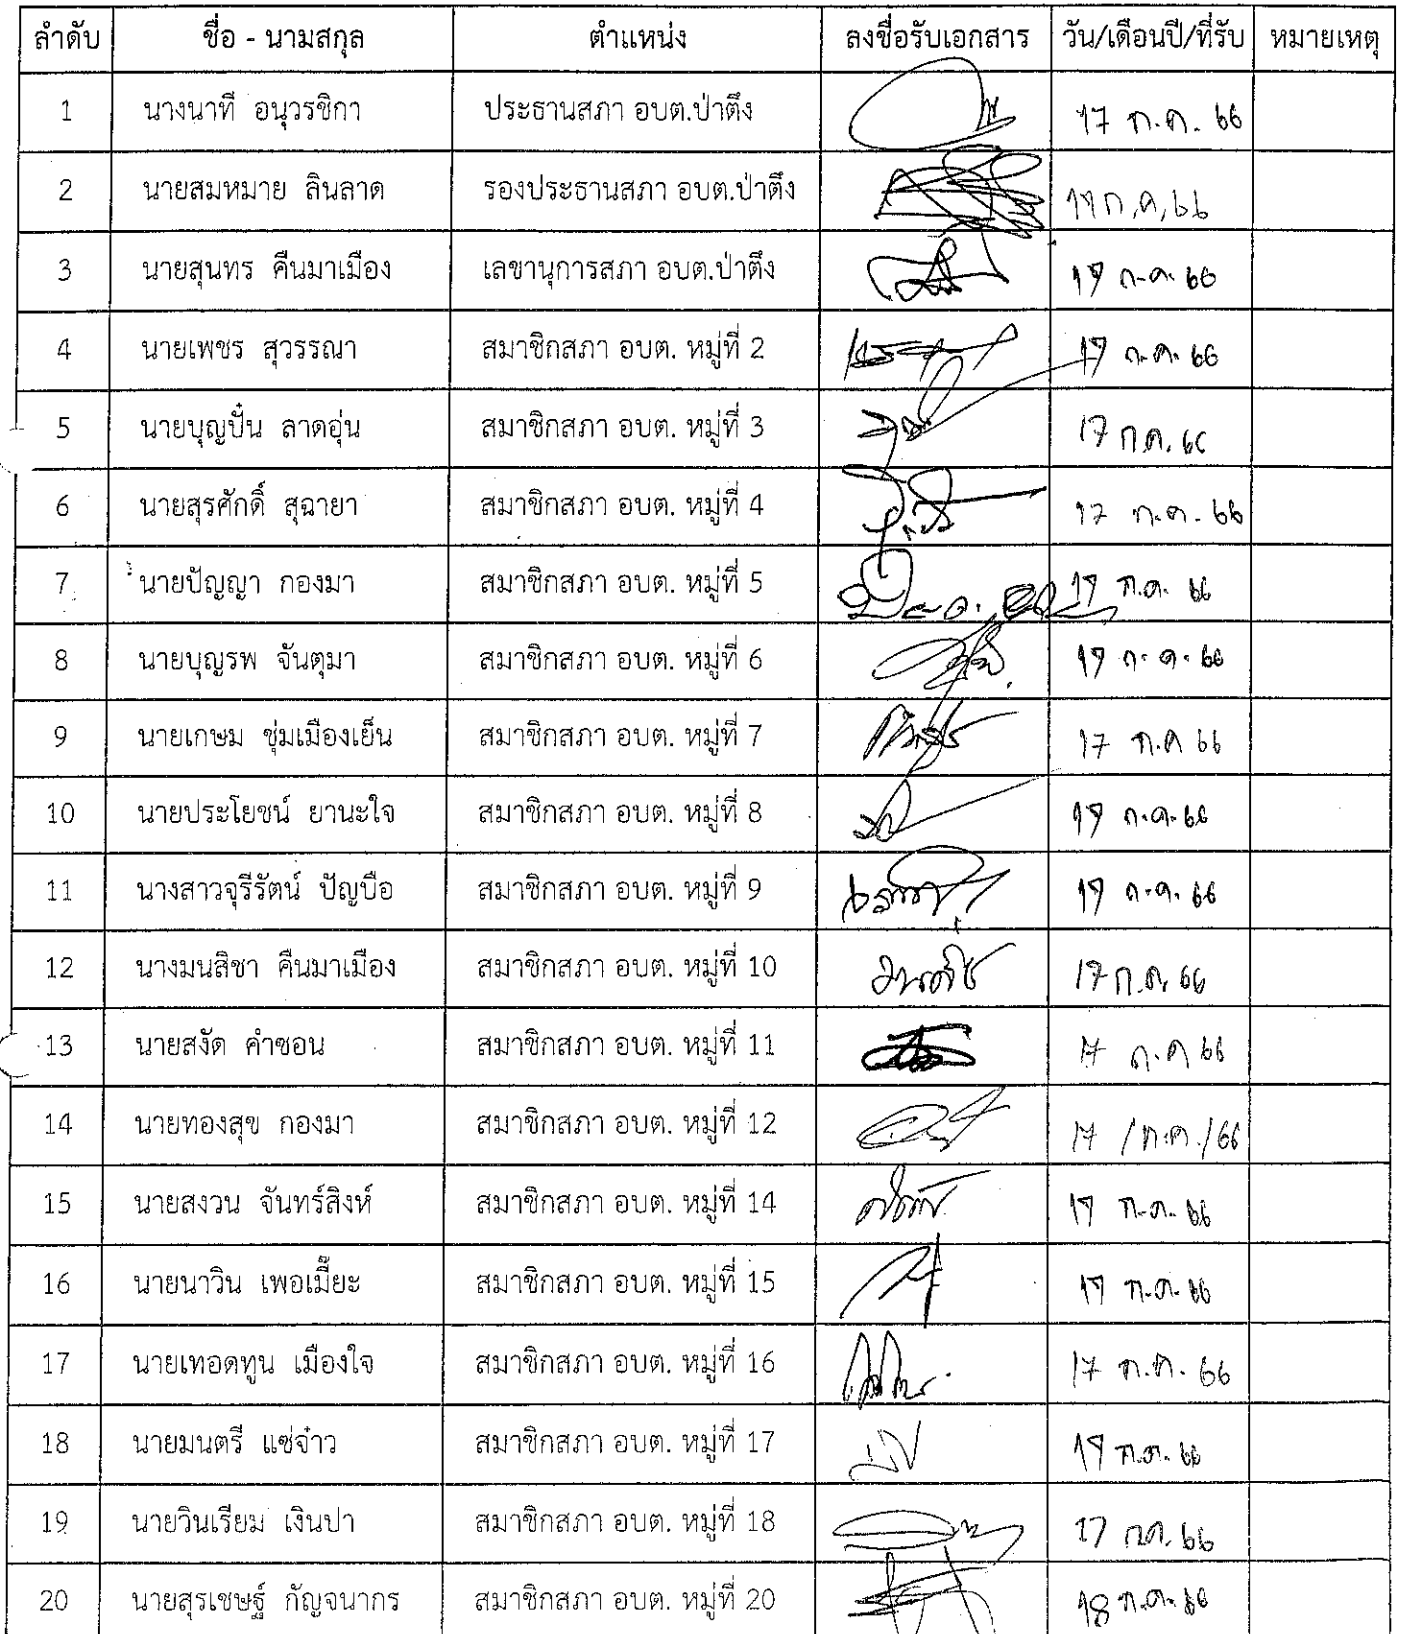 ลำดับ ชื่อ - นามสกุล ตำแหน่ง ลงชื่อรับเอกสาร วัน/เดือนปี/ที่รับ หมายเหตุ
1 นางนาที อนุวรชิกา ประธานสภา อบต.ป่าตึง 17 ก.ค. 66
2 นายสมหมาย ลินลาด รองประธานสภา อบต.ป่าตึง 17 ก.ค. 66
3 นายสุนทร คืนมาเมือง เลขานุการสภา อบต.ป่าตึง 17 ก.ค. 66
4 นายเพชร สุวรรณา สมาชิกสภา อบต. หมู่ที่ 2 17 ก.ค. 66
5 นายบุญปั๋น ลาดอุ่น สมาชิกสภา อบต. หมู่ที่ 3 17 ก.ค. 66
6 นายสุรศักดิ์ สุฉายา สมาชิกสภา อบต. หมู่ที่ 4 17 ก.ค. 66
7 นายปัญญา กองมา สมาชิกสภา อบต. หมู่ที่ 5 17 ก.ค. 66
8 นายบุญรพ จันตุมา สมาชิกสภา อบต. หมู่ที่ 6 17 ก.ค. 66
9 นายเกษม ชุ่มเมืองเย็น สมาชิกสภา อบต. หมู่ที่ 7 17 ก.ค 66
10 นายประโยชน์ ยานะใจ สมาชิกสภา อบต. หมู่ที่ 8 17 ก.ค. 66
11 นางสาวจุรีรัตน์ ปัญบือ สมาชิกสภา อบต. หมู่ที่ 9 17 ก.ค. 66
12 นางมนสิชา คืนมาเมือง สมาชิกสภา อบต. หมู่ที่ 10 17 ก.ค. 66
13 นายสงัด คำซอน สมาชิกสภา อบต. หมู่ที่ 11 17 ก.ค 66
14 นายทองสุข กองมา สมาชิกสภา อบต. หมู่ที่ 12 17 /ก.ค./66
15 นายสงวน จันทร์สิงห์ สมาชิกสภา อบต. หมู่ที่ 14 17 ก.ค. 66
16 นายนาวิน เพอเมี๊ยะ สมาชิกสภา อบต. หมู่ที่ 15 17 ก.ค. 66
17 นายเทอดทูน เมืองใจ สมาชิกสภา อบต. หมู่ที่ 16 17 ก.ค. 66
18 นายมนตรี แซ่จ๋าว สมาชิกสภา อบต. หมู่ที่ 17 17 ก.ค. 66
19 นายวินเรียม เงินปา สมาชิกสภา อบต. หมู่ที่ 18 17 กค. 66
20 นายสุรเชษฐ์ กัญจนากร สมาชิกสภา อบต. หมู่ที่ 20 18 ก.ค. 66